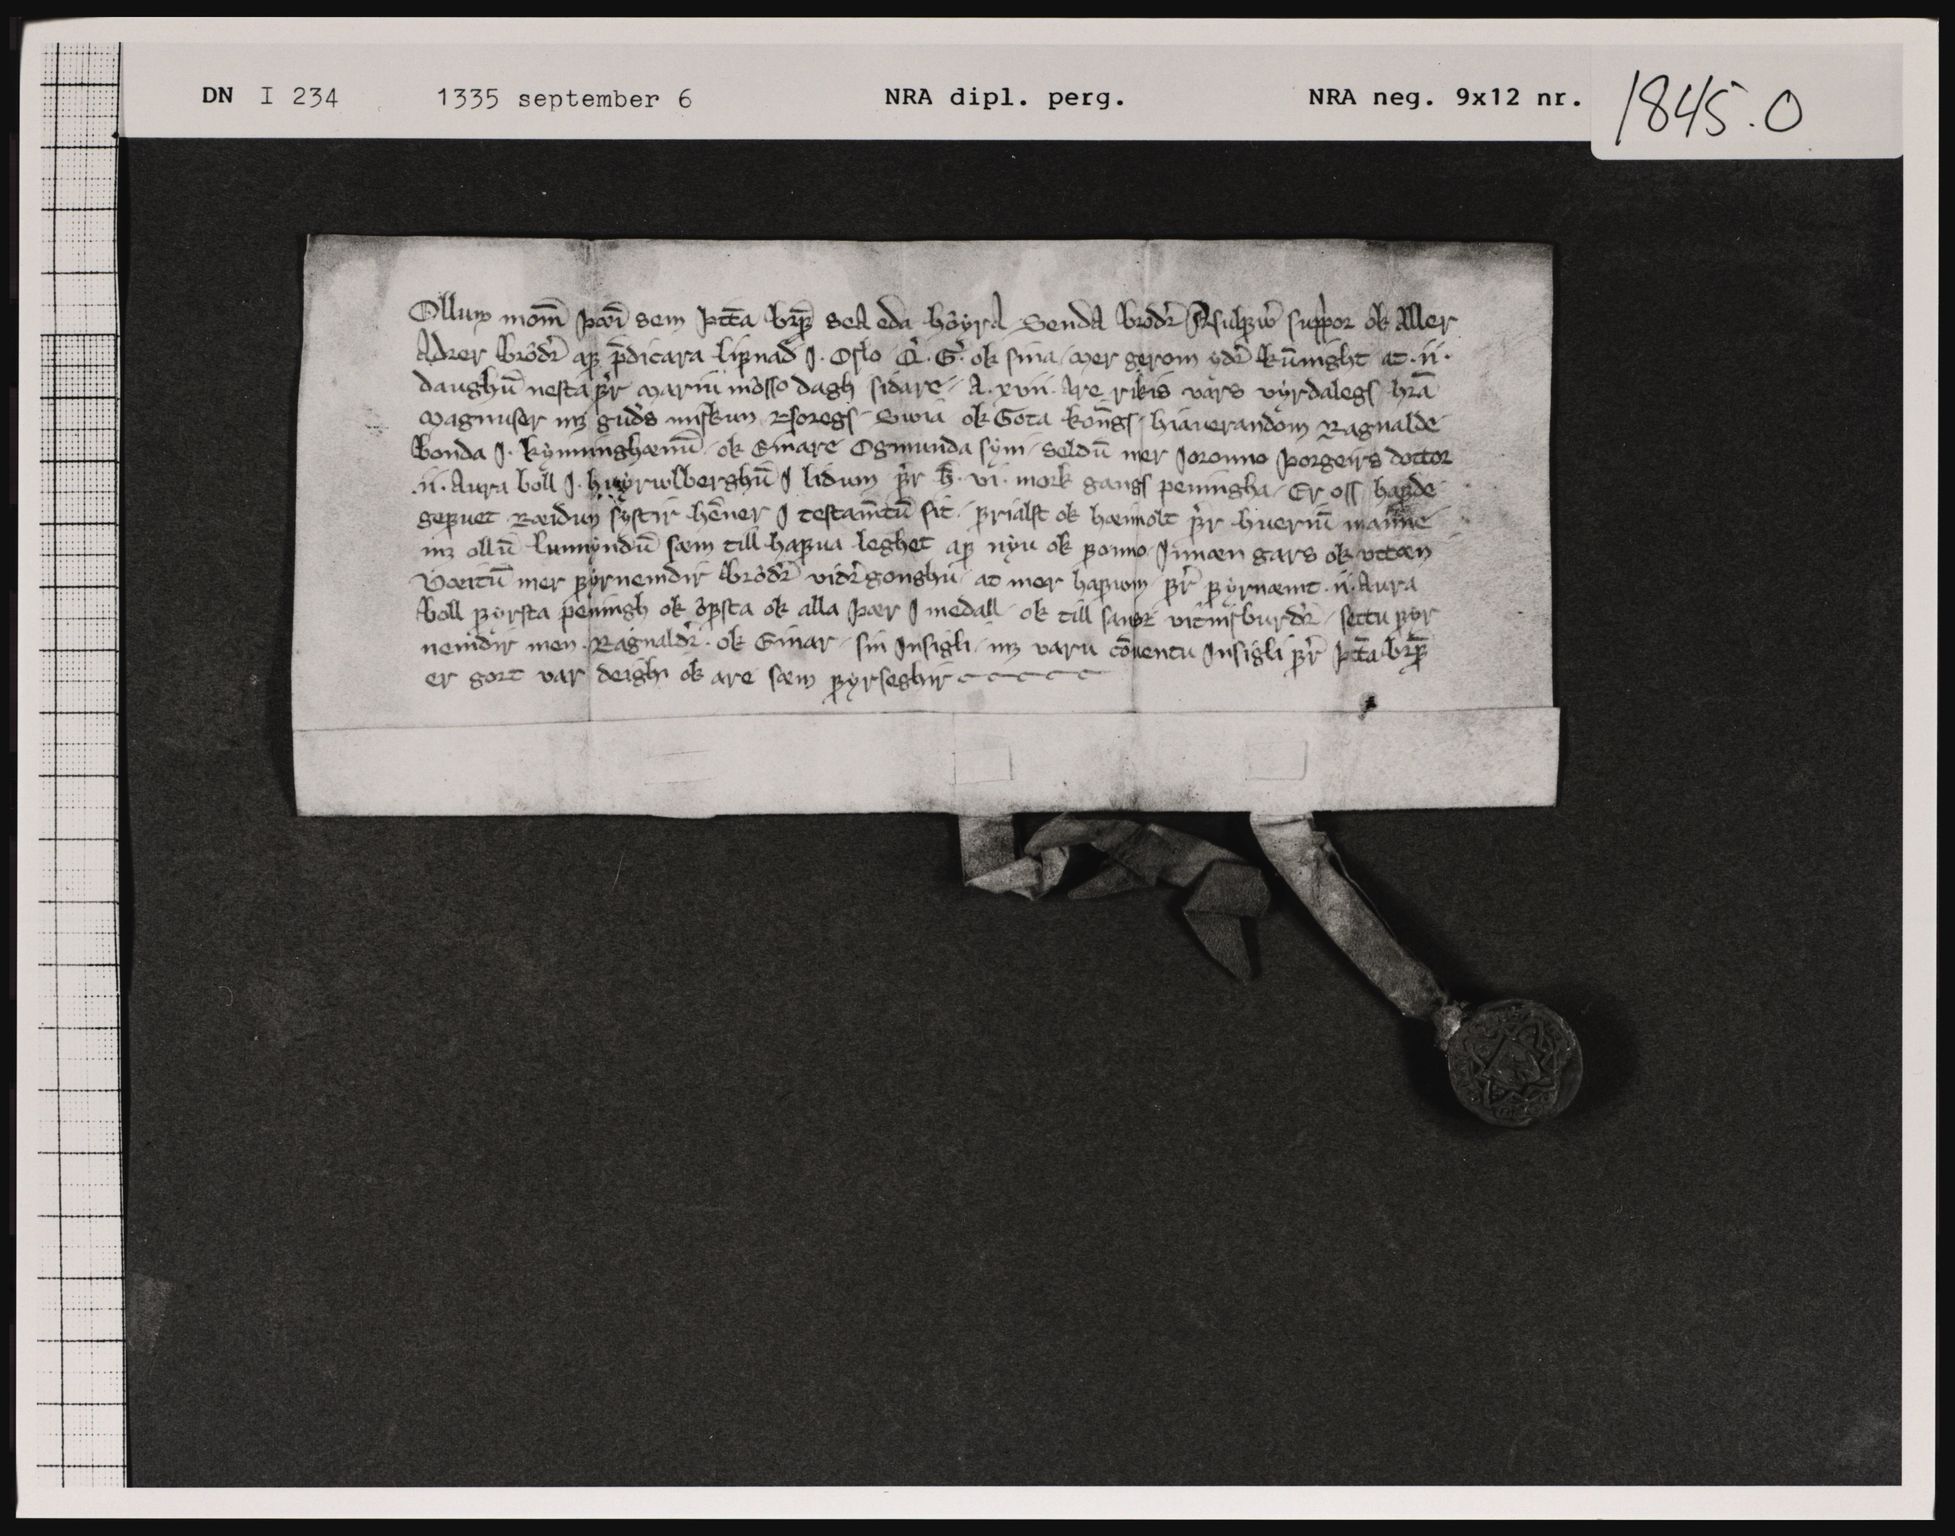 DN I 234 1335 september 6 NRA dipl. perg. NRA neg. 9x12 nr. 1845.0
Ollum mom̄ þæī sem þττa bref sea eda hôyra senda brôdr̄ suppor ok aller
Adrer brôdr̄ af p̄dicara lifnad j. Oslo Q. G. ok sina mer gerom ydr̄ kūnight at .ii.
daughū nesta fr̄ mariu mosso dagh sidare. A. xvii. are rikis vars vyrdalegs hr̄a
magnuser mꝫ guds miskun Noregs Swia ok Gota kōngs hiaverandom Ragnalde
bonda j. kynninghæimū ok Einare Ogmunda syni seldū mer Joronno þorgeirs dottor
.ii. Aura boll j. j lidum fr̄ .vi. mork gangs peningha. Er oss hafde
gefuet Ræidun systir hēner j testam̄tū sit. frialst ok hæimolt fr̄ hueriū manne
mꝫ ollū lunnyndū sæm till hafua leghet af nyu ok forno Jnnæn gars ok vttæn
Væitū mer fyrnemdir brôdr̄ vidr̄gonghu at mer hafuom fr̄ fyrnæmt .ii. Aura
boll fyrsta peningh ok ôfsta ok alla þær j medall ok till sanz vitnisburdr̄ settu fyr
nemdir men Ragnaldr̄ ok Einar sin Jnsigli mꝫ varu cōuentu Jnsigli fr̄ þττa bref
er gort var deighi ok are sæm fyrseghir